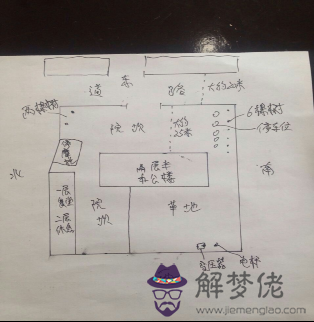 东
道 路
大约20米
两棵树
院坝
大约
25米
6棵树
停车位
水
南
二层半
办公楼
一层
食堂
二层
休息
院
坝
草地
变压器
电杆
解梦佬
www.jiemenglao.com